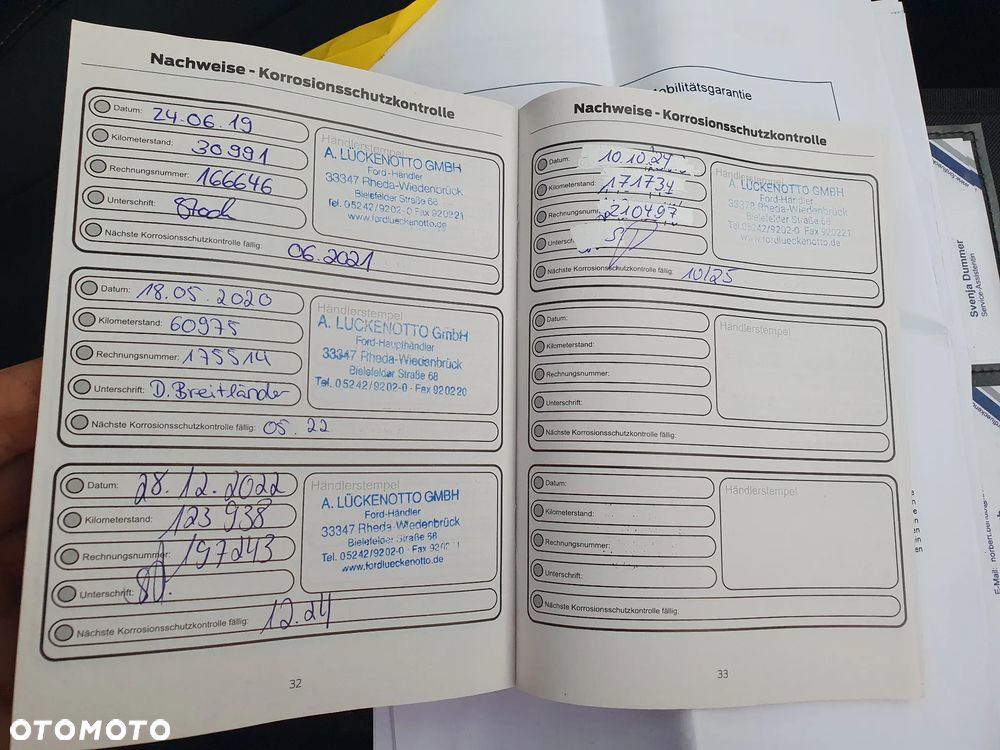 Nachweise - Korrosionsschutzkontrolle
Datum: 24.06.19
Kilometerstand: 30991
Rechnungsnummer: 166646
Unterschrift:
Nächste Korrosionsschutzkontrolle fällig: 06.2021
Händlerstempel
A. LÜCKENOTTO GMBH
Ford-Händler
33347 Rheda-Wiedenbrück
Bielefelder Straße 68
Tel. 05242/9202-0 Fax 920221
www.fordlueckenotto.de
Datum: 18.05.2020
Kilometerstand: 60975
Rechnungsnummer: 175514
Unterschrift: D. Breitländer
Nächste Korrosionsschutzkontrolle fällig: 05.22
Händlerstempel
A. LÜCKENOTTO GmbH
Ford-Haupthändler
33347 Rheda-Wiedenbrück
Bielefelder Straße 68
Tel. 05242/9202-0 - Fax 920220
Datum: 28.12.2022
Kilometerstand: 123 938
Rechnungsnummer: 197243
Unterschrift:
Nächste Korrosionsschutzkontrolle fällig: 12.24
Händlerstempel
A. LÜCKENOTTO GMBH
Ford-Händler
33347 Rheda-Wiedenbrück
Bielefelder Straße 68
Tel. 05242/9202-0 Fax
www.fordlueckenotto.de
32
Nachweise - Korrosionsschutzkontrolle
Datum: 10.10.24
Kilometerstand: 171734
Rechnungsnu 210497
Untersch
Nächste Korrosionsschutzkontrolle fällig: 10/25
Händlerstempel
A. LÜCKENOTTO GMBH
Ford-Händler
33378 Rheda-Wiedenbrück
Bielefelder Straße 68
Tel. 05242/9202-0 Fax 920221
www.fordlueckenotto.de
Datum:
Kilometerstand:
Rechnungsnummer:
Unterschrift:
Nächste Korrosionsschutzkontrolle fällig:
Händlerstempel
Datum:
Kilometerstand:
Rechnungsnummer:
Unterschrift:
Nächste Korrosionsschutzkontrolle fällig:
Händlerstempel
33
obilitätsgarantie
Svenja Dummer
Service-Assistentin
E-Mail:
OTOMOTO